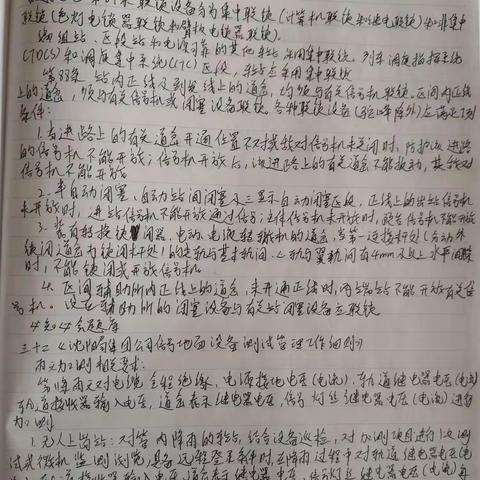 联锁(色灯电锁器联锁和臂板电锁器联锁)。
编组站、区段站和电源可靠的其他车站,采用集中联锁。列车调度指挥系统
(TDCS)和调度集中系统(CTC)区段,车站应采用集中联锁
第88条 站内正线及到发线上的道岔,均须与有关信号机联锁。区间内正线
上的道岔,须与有关信号机或闭塞设备联锁。各种联锁设备(驼峰除外)应满足下列
条件:
1.当进路上的有关道岔开通位置不对或敌对信号机未关闭时,防护该进路
的信号机不能开放;信号机开放后,该进路上的有关道岔不能扳动,其敌对
信号机不能开放
2.半自动闭塞、自动站间闭塞及三显示自动闭塞区段,正线上的出站信号机
未开放时,进站信号机不能开放通过信号;主体信号机未开放时,预告信号机不能开放
3.装有转换锁闭器、电动、电液转辙机的道岔,当第一连接杆处(分动外
锁闭道岔为锁闭杆处)的尖轨与基本轨间、心轨与翼轨间有4mm及以上水平间隙
时,不能锁闭或开放信号机
4.区间辅助所内正线上的道岔,未开通正线时,两端站不能开放有关信
号机。设在辅助所的闭塞设备与有关站闭塞设备应联锁
三十二《沈阳局集团公司信号地面设备测试管理工作细则》
雨天加测相关要求:
第1阵雨天对电缆全程绝缘、电源接地电压(电流)、轨道继电器电压(电流)
轨道接收器输入电压、道岔表示继电器电压、信号灯丝继电器电压(电流)进行
加测
1.无人上岗站:对管内降雨的车站,结合设备巡检,对加测项目进行1次测
试或微机监测浏览;具备远程登录条件时,在降雨过程中对轨道继电器电压(电